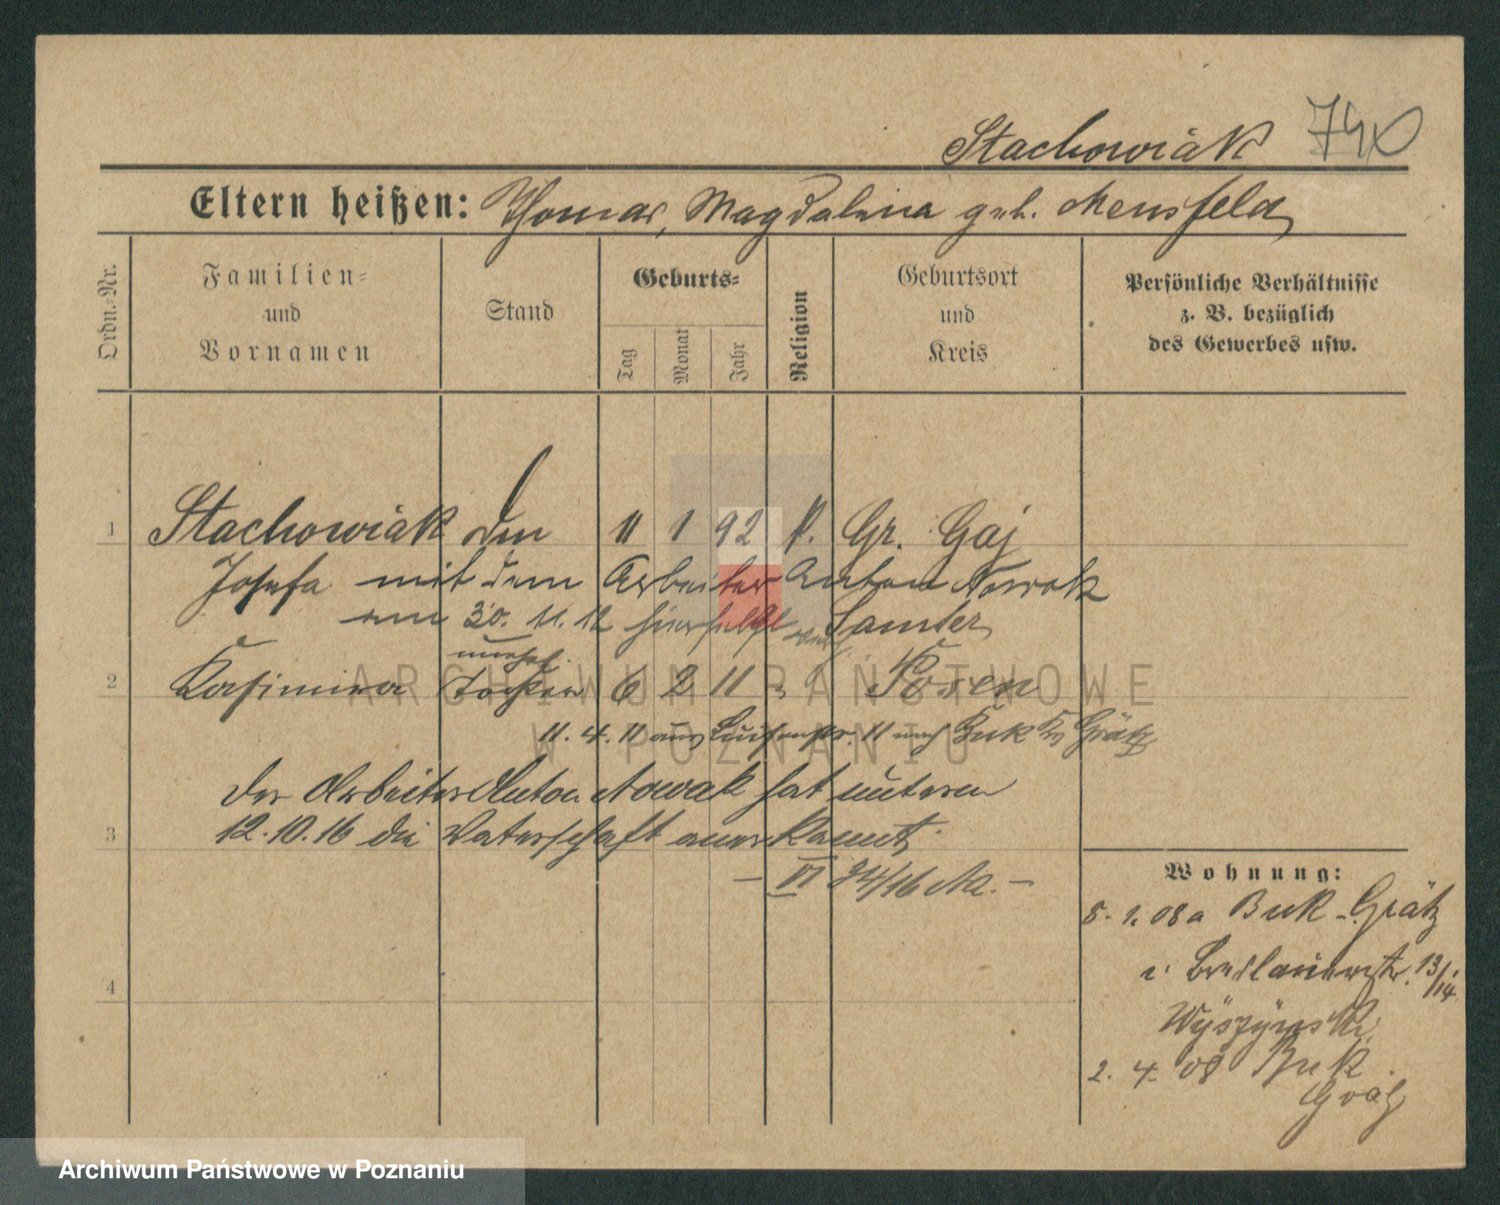 Stachowiak 740
Eltern heißen: Thomas, Magdalena geb. Mensfeld
Ordn.-Nr.
Familien- und Vornamen
Stand
Geburts-
Tag
Monat
Jahr
Religion
Geburtsort und Kreis
Persönliche Verhältnisse
z. B. bezüglich
des Gewerbes usw.
1 Stachowiak 11 1 92 k. Gr. Gaj
Josefa mit dem Arbeiter Anton Nowak
am 30. 11. 12 Samter
unehel.
2 Kasimira Tochter 6 2 11 " Posen
11. 4. 11 aus 11 nach Buk Kr Grätz
Der Arbeiter Anton Nowak hat unterm
3 12.10.16 die Vaterschaft anerkannt.
— VI 34/16 —
4
Wohnung:
8. 1. 08 a Buk - Grätz
Breslauerstr. 13/14.
Wyszynski
2. 4. 08 Buk
Grätz
ARCHIWUM PAŃSTWOWE
W POZNANIU
Archiwum Państwowe w Poznaniu